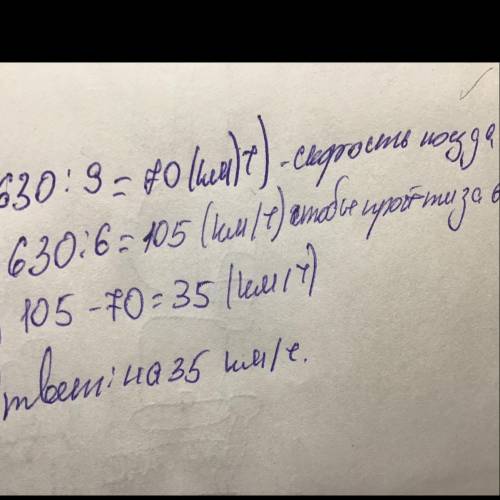 630 : 9 = 70 (км/ч) - скорость поезда
630 : 6 = 105 (км/ч) чтобы пройти за 6
105 - 70 = 35 (км/ч)
твет: на 35 км/ч.